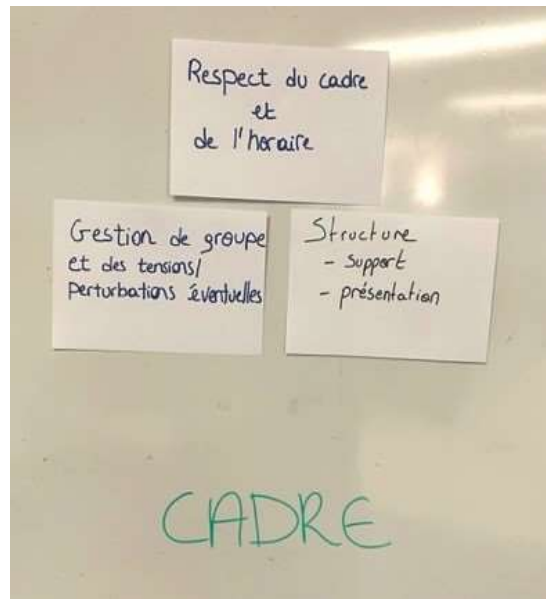 Respect du cadre
et
de l'horaire
Gestion de groupe
et des tensions/
perturbations éventuelles
Structure
- support
- présentation
CADRE